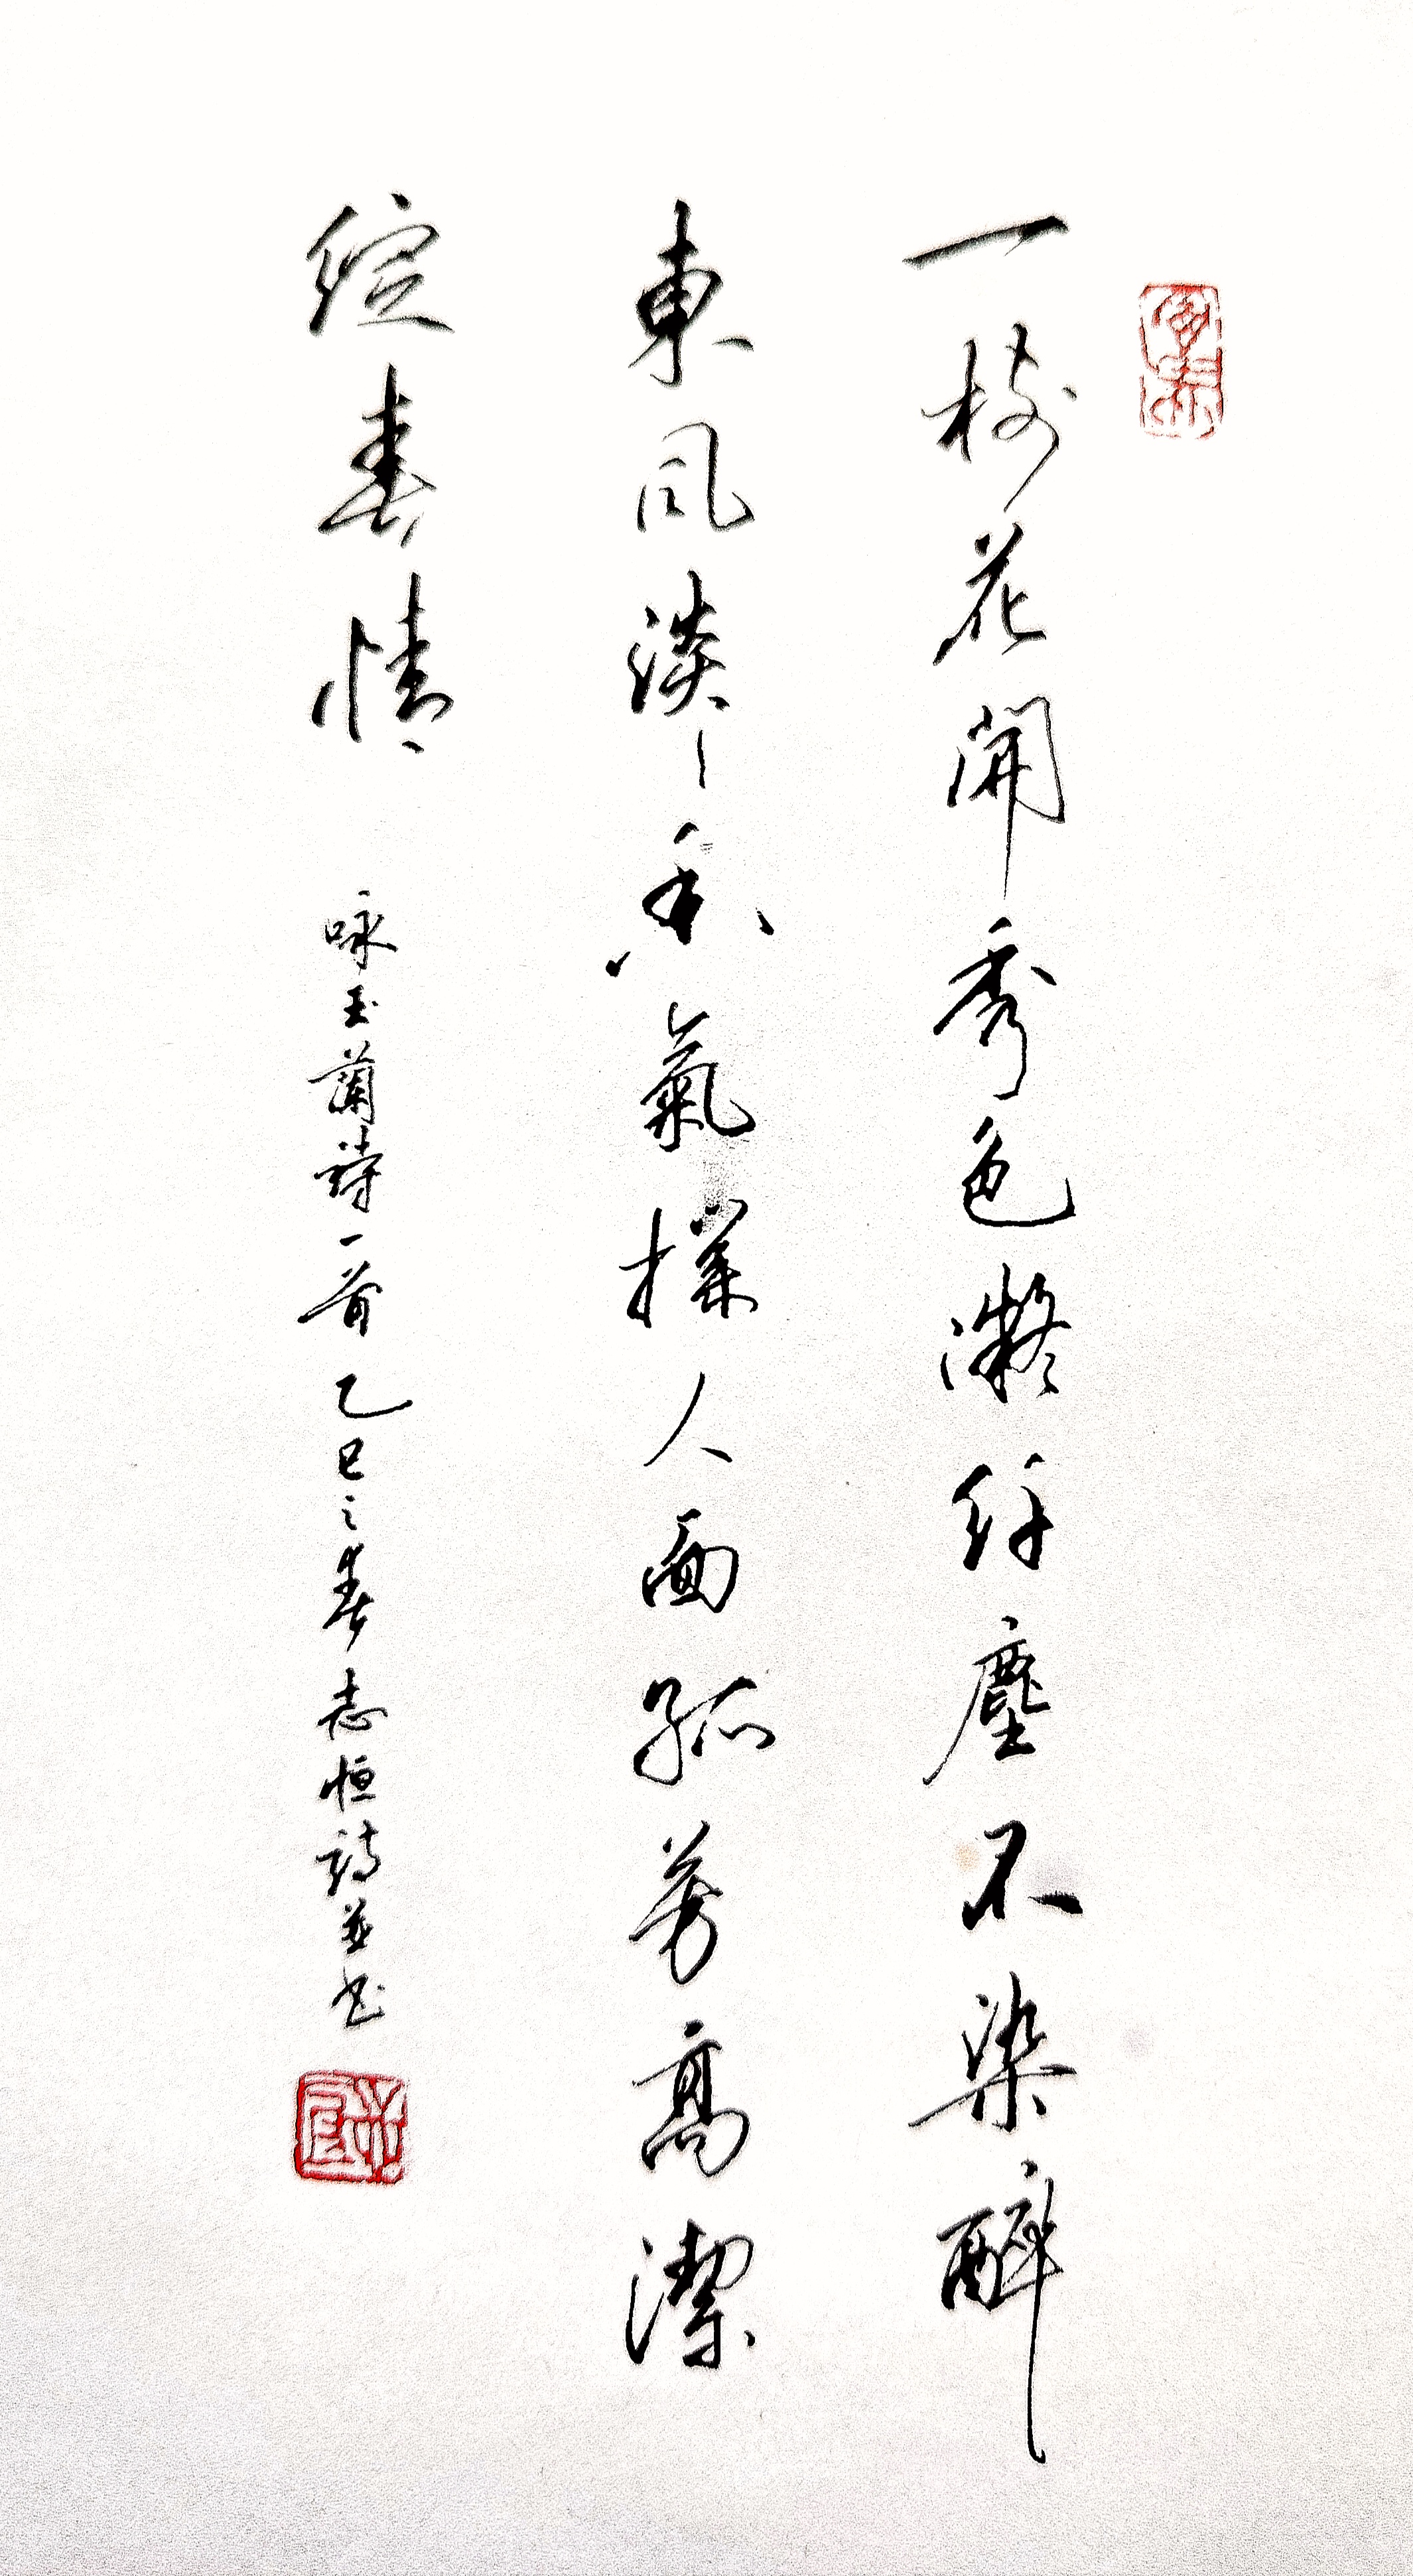 一樹花開秀色凝纖塵不染醉
東風淡淡香氣撲人面孤芳高潔
綻春情
咏玉蘭詩一首乙巳之春志恒詩並书
志恒